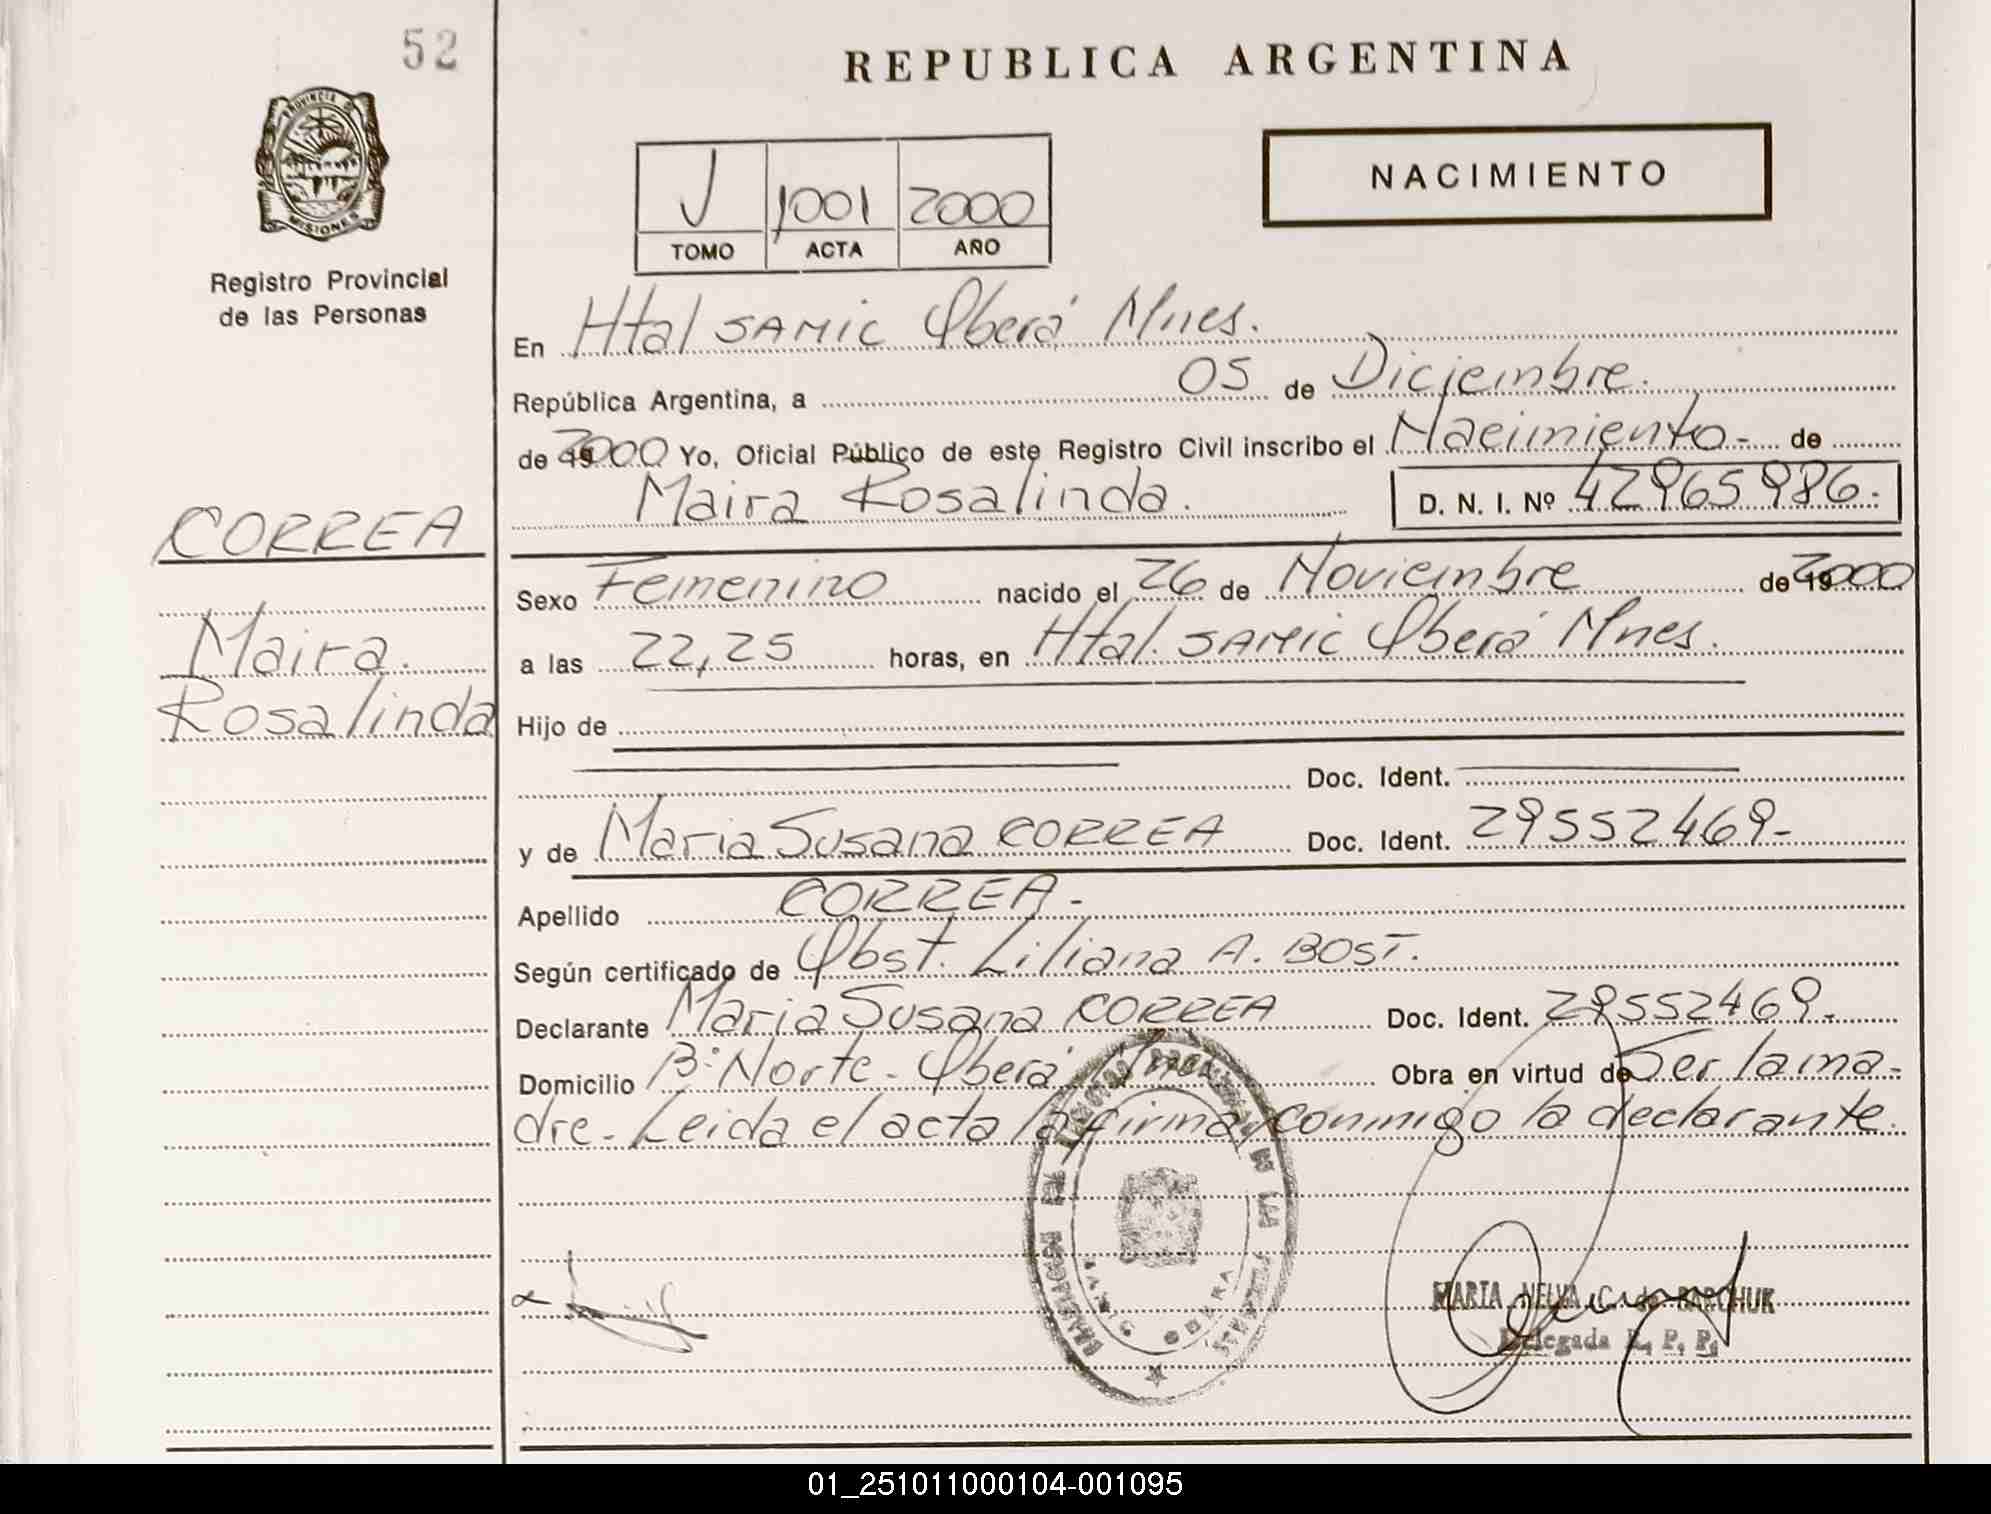 52
REPUBLICA ARGENTINA
PROVINCIA DE
MISIONES
Registro Provincial
de las Personas
J 1001 2000
TOMO ACTA AÑO
NACIMIENTO
En Htal SAMIC Oberá Mnes.
República Argentina, a 05 de Diciembre.
de 2000 Yo, Oficial Público de este Registro Civil inscribo el Nacimiento- de
Maira Rosalinda. D. N. I. Nº 42965986.
CORREA
Maira.
Rosalinda
Sexo Femenino nacido el 26 de Noviembre de 2000
a las 22,25 horas, en Htal. SAMIC Oberá Mnes.
Hijo de
Doc. Ident.
y de Maria Susana CORREA Doc. Ident. 29552469-
Apellido CORREA-
Según certificado de Obst. Liliana A. BOST.
Declarante Maria Susana CORREA Doc. Ident. 29552469-
Domicilio Bº Norte- Oberá Mnes Obra en virtud de Ser la ma-
dre- Leida el acta la firma conmigo la declarante.
DE LAS PERSONAS
SAMIC OBERA
MARIA NELVA C. de BARCHUK
Delegada R. P. P.
01_251011000104-001095